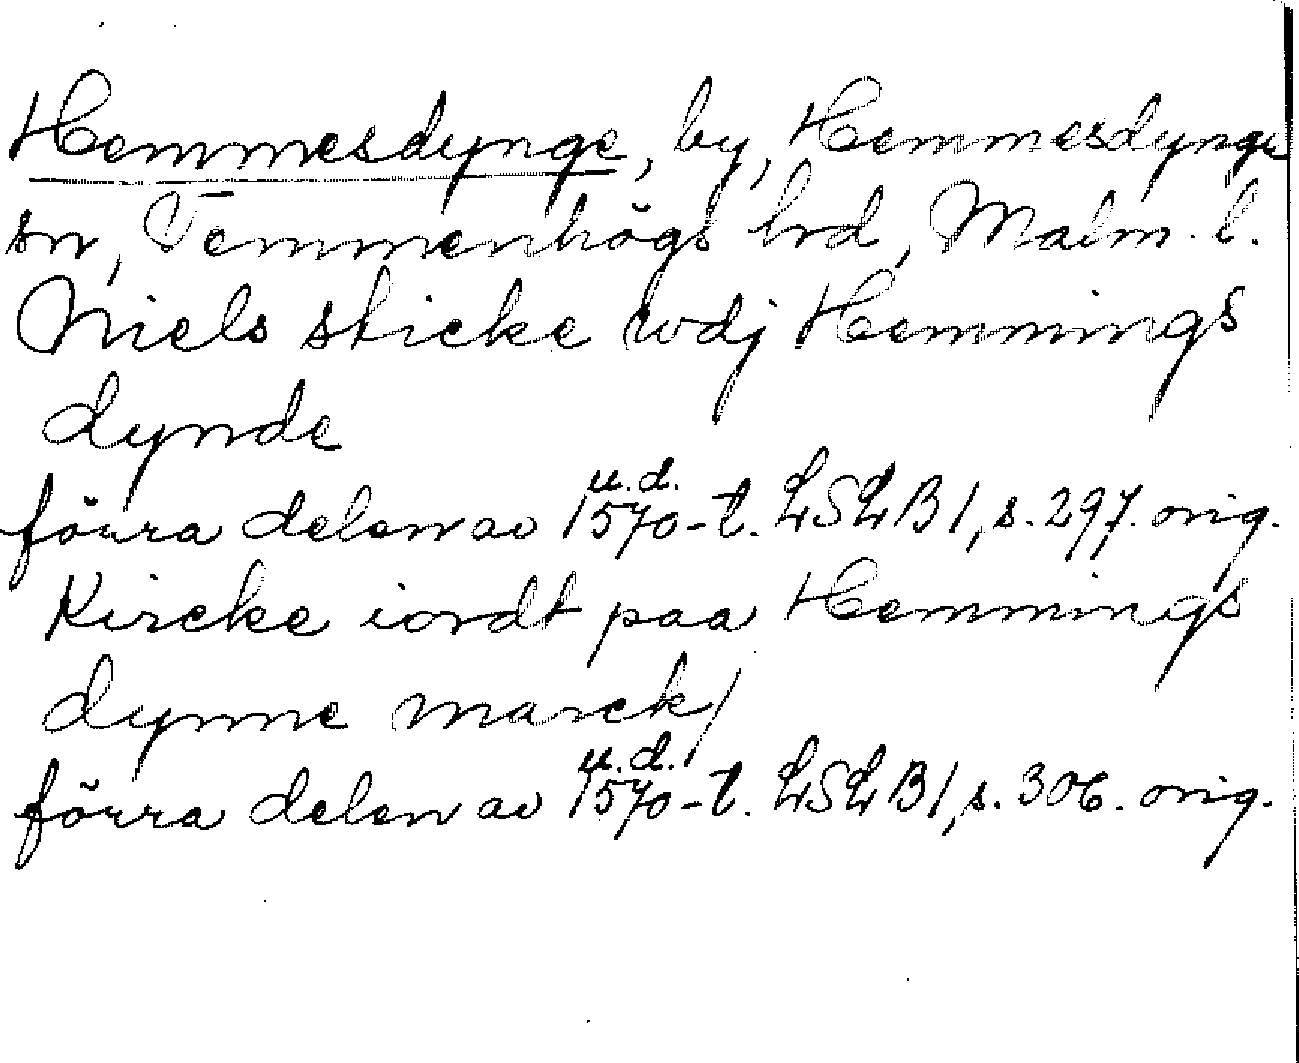 Hemmesdynge, by, Hemmesdynge
sn, Vemmenhögs hrd, Malm. l.
Niels sticke wdj Hemmings
dynde
u.d.
förra delen av 1570-t. LSLB 1, s. 297. orig.
Kircke iordt paa Hemmings
dynne marck/
u.d.
förra delen av 1570-t. LSLB 1, s. 306. orig.